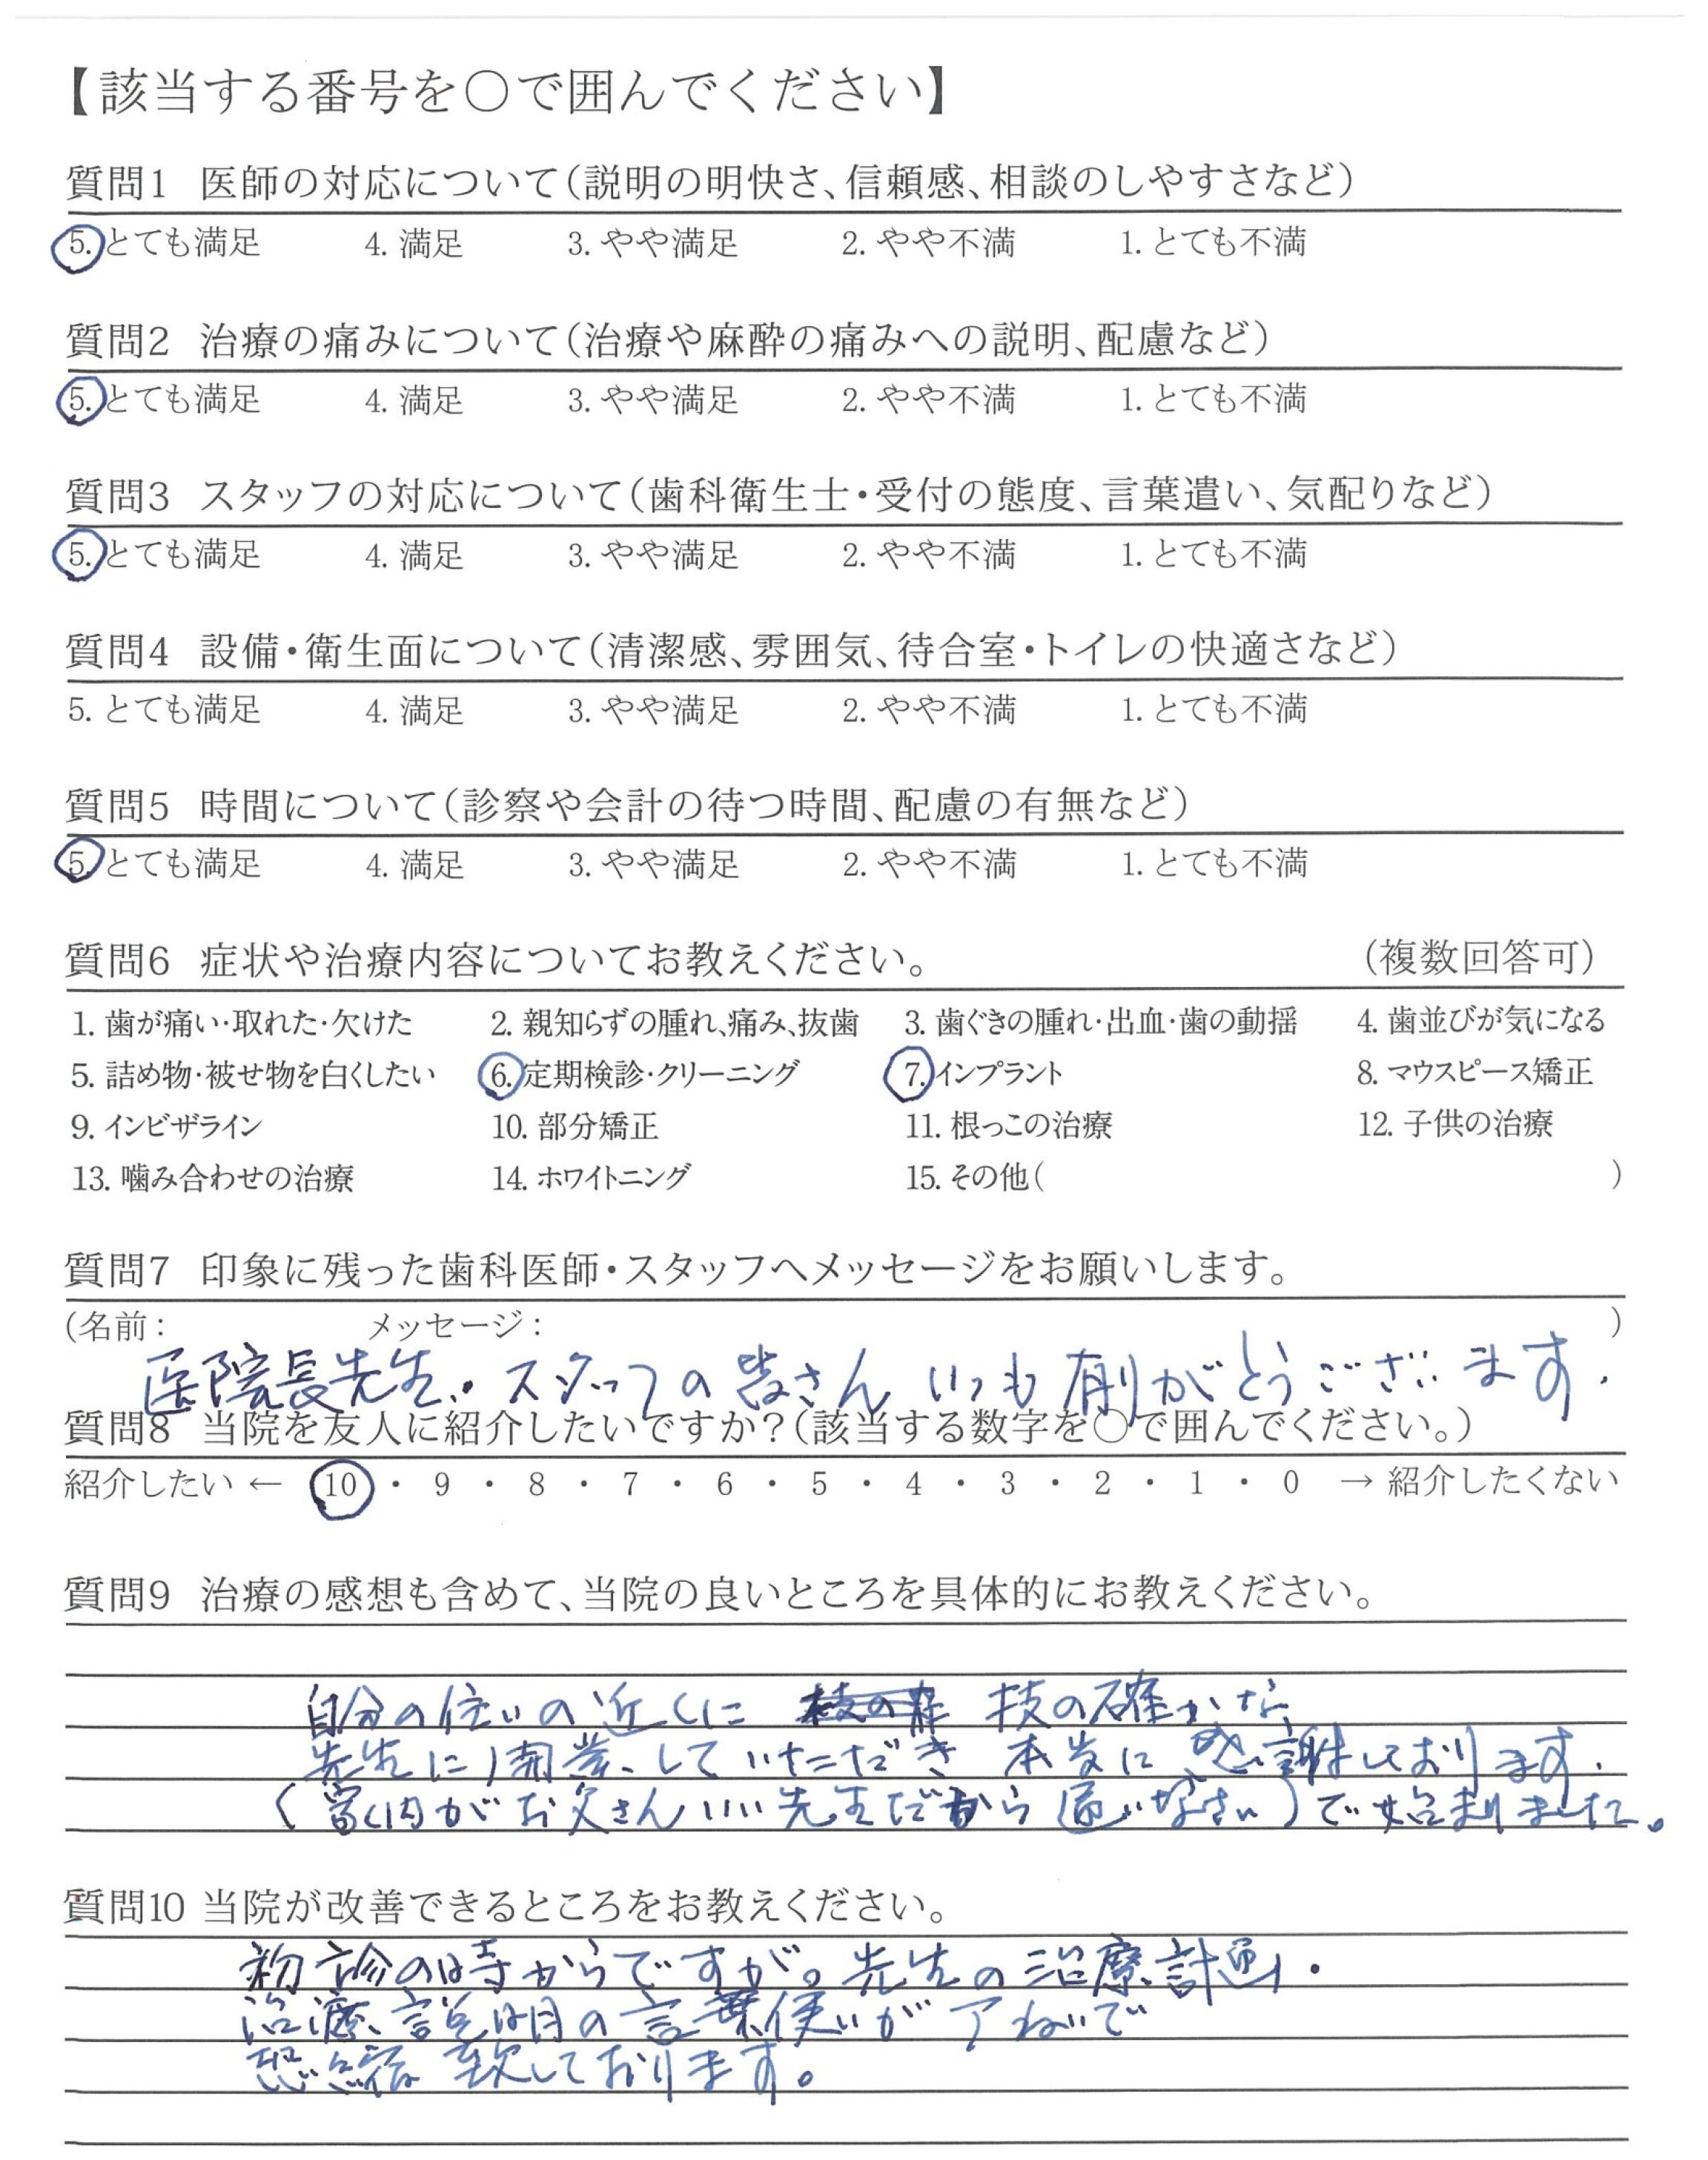 【該当する番号を〇で囲んでください】
質問1 医師の対応について(説明の明快さ、信頼感、相談のしやすさなど)
5. とても満足 4. 満足 3. やや満足 2. やや不満 1. とても不満
質問2 治療の痛みについて(治療や麻酔の痛みへの説明、配慮など)
5. とても満足 4. 満足 3. やや満足 2. やや不満 1. とても不満
質問3 スタッフの対応について(歯科衛生士・受付の態度、言葉遣い、気配りなど)
5. とても満足 4. 満足 3. やや満足 2. やや不満 1. とても不満
質問4 設備・衛生面について(清潔感、雰囲気、待合室・トイレの快適さなど)
5. とても満足 4. 満足 3. やや満足 2. やや不満 1. とても不満
質問5 時間について(診察や会計の待つ時間、配慮の有無など)
5. とても満足 4. 満足 3. やや満足 2. やや不満 1. とても不満
質問6 症状や治療内容についてお教えください。 (複数回答可)
1. 歯が痛い・取れた・欠けた 2. 親知らずの腫れ、痛み、抜歯 3. 歯ぐきの腫れ・出血・歯の動揺 4. 歯並びが気になる
5. 詰め物・被せ物を白くしたい 6. 定期検診・クリーニング 7. インプラント 8. マウスピース矯正
9. インビザライン 10. 部分矯正 11. 根っこの治療 12. 子供の治療
13. 噛み合わせの治療 14. ホワイトニング 15. その他( )
質問7 印象に残った歯科医師・スタッフへメッセージをお願いします。
(名前: メッセージ: )
医院長先生.・スタッフの皆さんいつも有りがとうございます.
質問8 当院を友人に紹介したいですか?(該当する数字を〇で囲んでください。)
紹介したい ← 10 ・ 9 ・ 8 ・ 7 ・ 6 ・ 5 ・ 4 ・ 3 ・ 2 ・ 1 ・ 0 → 紹介したくない
質問9 治療の感想も含めて、当院の良いところを具体的にお教えください。
自分の住いの近くに 技の確かな
先生に開業していただき 本当に感謝しております.
(家内がお父さんいい先生だから通いなさい)で始まりました。
質問10 当院が改善できるところをお教えください。
初診の時からですが。先生の治療計画・
治療説明の言葉使いが丁ねいで
恐縮致しております。